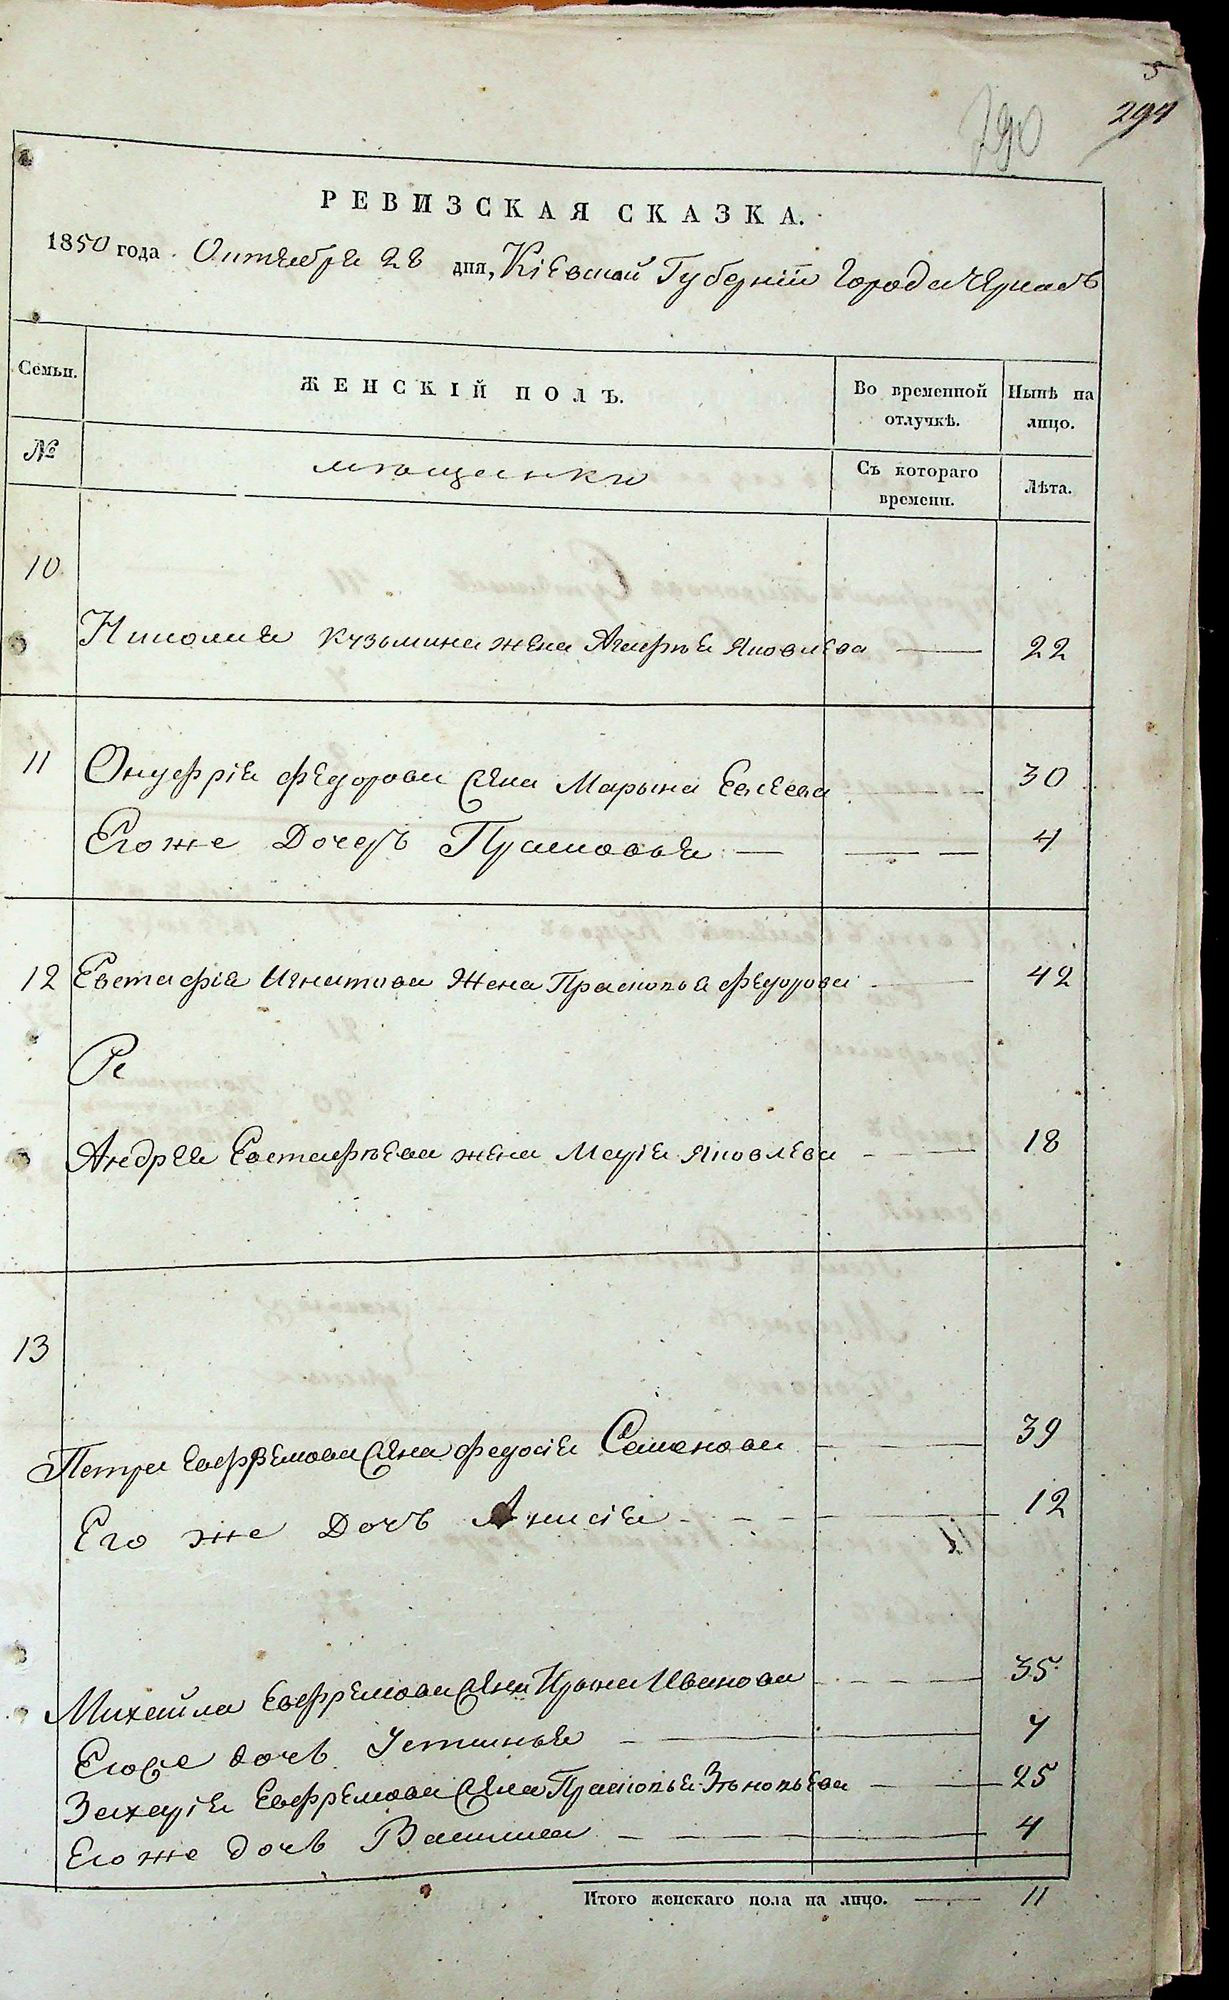 5
291
290
РЕВИЗСКАЯ СКАЗКА.
1850 года. Октября 28 дня, Кіевской Губерніи Города Черкасъ
Семьи. ЖЕНСКІЙ ПОЛЪ. Во временной отлучкѣ. Нынѣ на лицо.
№ мѣщанки Съ котораго времени. Лѣта.
10
Николая Кузьмина жена Агафья Яковлева — 22
11 Онуфрія Федорова Жена Марьина Евсеева — 30
Его же Дочерь Прасковья — 4
12 Евстафія Игнатова Жена Прасковья Федорова — 42
Ре
Андрея Евстафьева жена Марія Яковлева — 18
13
Петра Евфремова Жена Федосія Семенова — 39
Его же Дочь Анисія — 12
Михайла Евфремова Жена Ирина Иванова — 35
Егоже дочь Устинья — 7
Захарія Евфремова Жена Прасковья Зѣновьева — 25
Его же дочь Василиса — 4
Итого женскаго пола на лицо. — 11